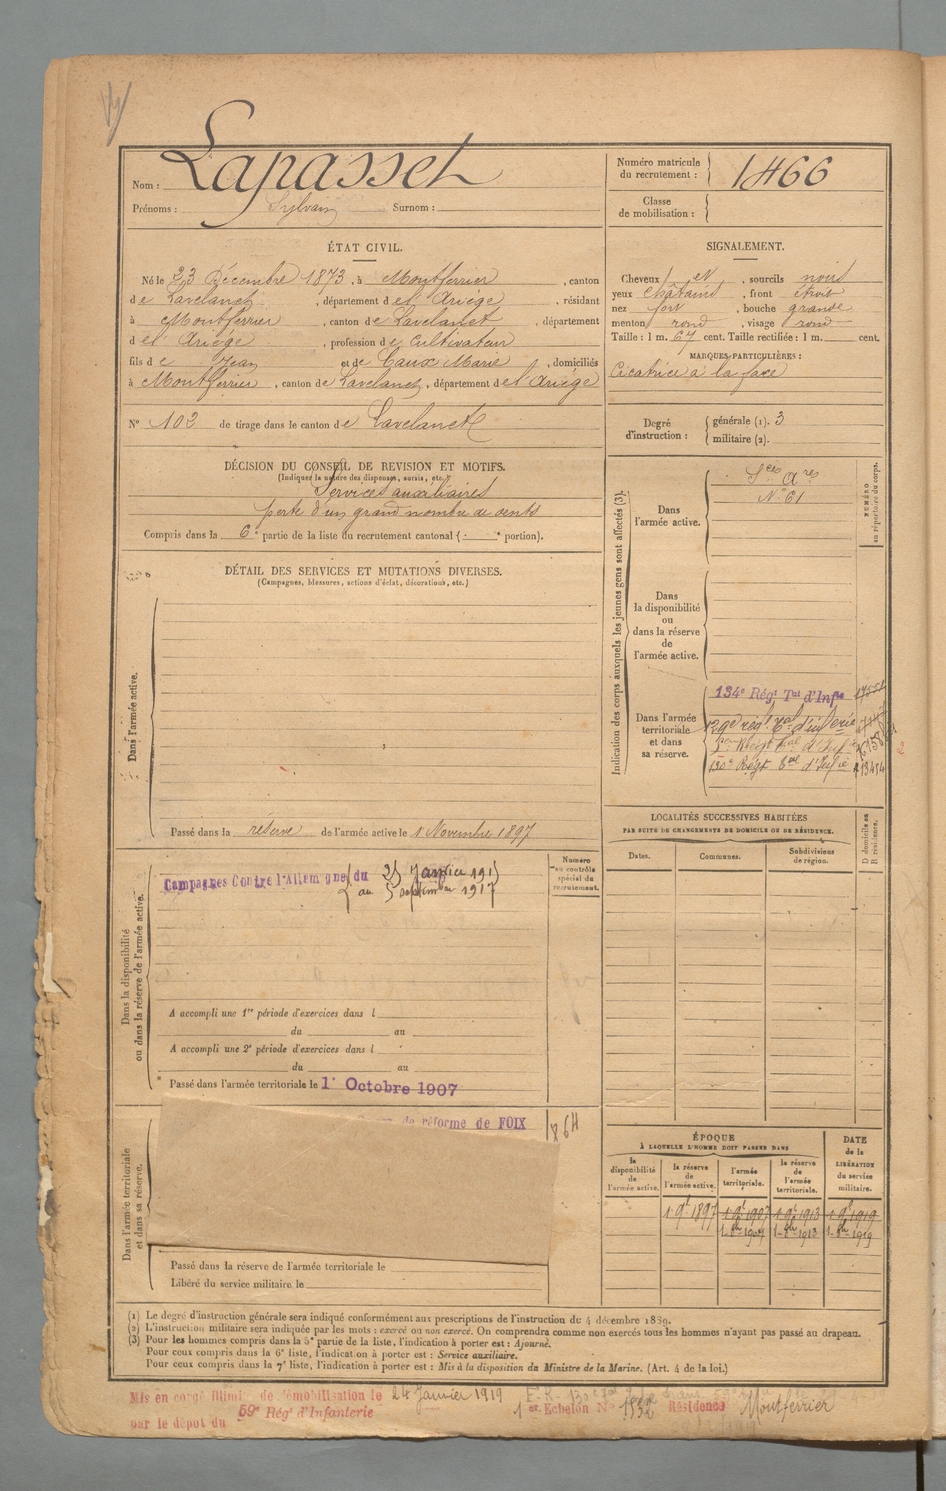 Nom : Lapasset
Prénoms : Sylvain Surnom :
Numéro matricule du recrutement : 1466
Classe de mobilisation :
ÉTAT CIVIL.
Né le 23 Décembre 1873, à Montferrier, canton
de Lavelanet, département de l'Ariège, résidant
à Montferrier, canton de Lavelanet, département
de l'Ariège, profession de cultivateur
fils de Jean et de Caux Marie, domiciliés
à Montferrier, canton de Lavelanet, département de l'Ariège
N° 102 de tirage dans le canton de Lavelanet
SIGNALEMENT.
Cheveux et, sourcils noirs
yeux châtains, front étroit
nez fort, bouche grande
menton rond, visage rond
Taille : 1 m. 67 cent. Taille rectifiée : 1 m. cent.
MARQUES PARTICULIÈRES :
Cicatrice à la face
Degré d'instruction : générale (1). 3
militaire (2).
DÉCISION DU CONSEIL DE REVISION ET MOTIFS.
(Indiquer la nature des dispenses, sursis, etc.)
Services auxiliaires
perte d'un grand nombre de dents
Compris dans la 6e partie de la liste du recrutement cantonal ( e portion).
DÉTAIL DES SERVICES ET MUTATIONS DIVERSES.
(Campagnes, blessures, actions d'éclat, décorations, etc.)
Dans l'armée active.
Passé dans la réserve de l'armée active le 1 Novembre 1897
Indication des corps auxquels les jeunes gens sont affectés (3).
NUMÉRO au répertoire du corps.
Dans l'armée active.
Sces Ares
N° 61
Dans la disponibilité ou dans la réserve de l'armée active.
Dans l'armée territoriale et dans sa réserve.
134e Régt Tal d'Infie
129e régt tal d'infterie
130e Régt Tal d'Infie
13454
LOCALITÉS SUCCESSIVES HABITÉES
PAR SUITE DE CHANGEMENTS DE DOMICILE OU DE RÉSIDENCE.
Dates.
Communes.
Subdivisions de région.
D domicile ou R résidence.
Dans la disponibilité ou dans la réserve de l'armée active.
Numéro au contrôle spécial du recrutement.
Campagnes Contre l'Allemagne du 25 Janvier 1915
au 5 septembre 1917
A accompli une 1re période d'exercices dans l
du au
A accompli une 2e période d'exercices dans l
du au
Passé dans l'armée territoriale le 1er Octobre 1907
Dans l'armée territoriale et dans sa réserve.
de réforme de FOIX
Passé dans la réserve de l'armée territoriale le
Libéré du service militaire le
ÉPOQUE
À LAQUELLE L'HOMME DOIT PASSER DANS
la disponibilité de l'armée active.
la réserve de l'armée active.
l'armée territoriale.
la réserve de l'armée territoriale.
DATE de la LIBÉRATION du service militaire.
1 9bre 1897 1 9bre 1907 1 9bre 1913 1 9bre 1919
1-8bre 1907 1-8bre 1913 1-8bre 1919
(1) Le degré d'instruction générale sera indiqué conformément aux prescriptions de l'instruction du 4 décembre 1889.
(2) L'instruction militaire sera indiquée par les mots : exercé ou non exercé. On comprendra comme non exercés tous les hommes n'ayant pas passé au drapeau.
(3) Pour les hommes compris dans la 5e partie de la liste, l'indication à porter est : Ajourné.
Pour ceux compris dans la 6e liste, l'indication à porter est : Service auxiliaire.
Pour ceux compris dans la 7e liste, l'indication à porter est : Mis à la disposition du Ministre de la Marine. (Art. 4 de la loi.)
Mis en congé illimité de démobilisation le 24 Janvier 1919
1er Echelon N° 1532 Résidence Montferrier
par le dépôt du 59e Régt d'Infanterie